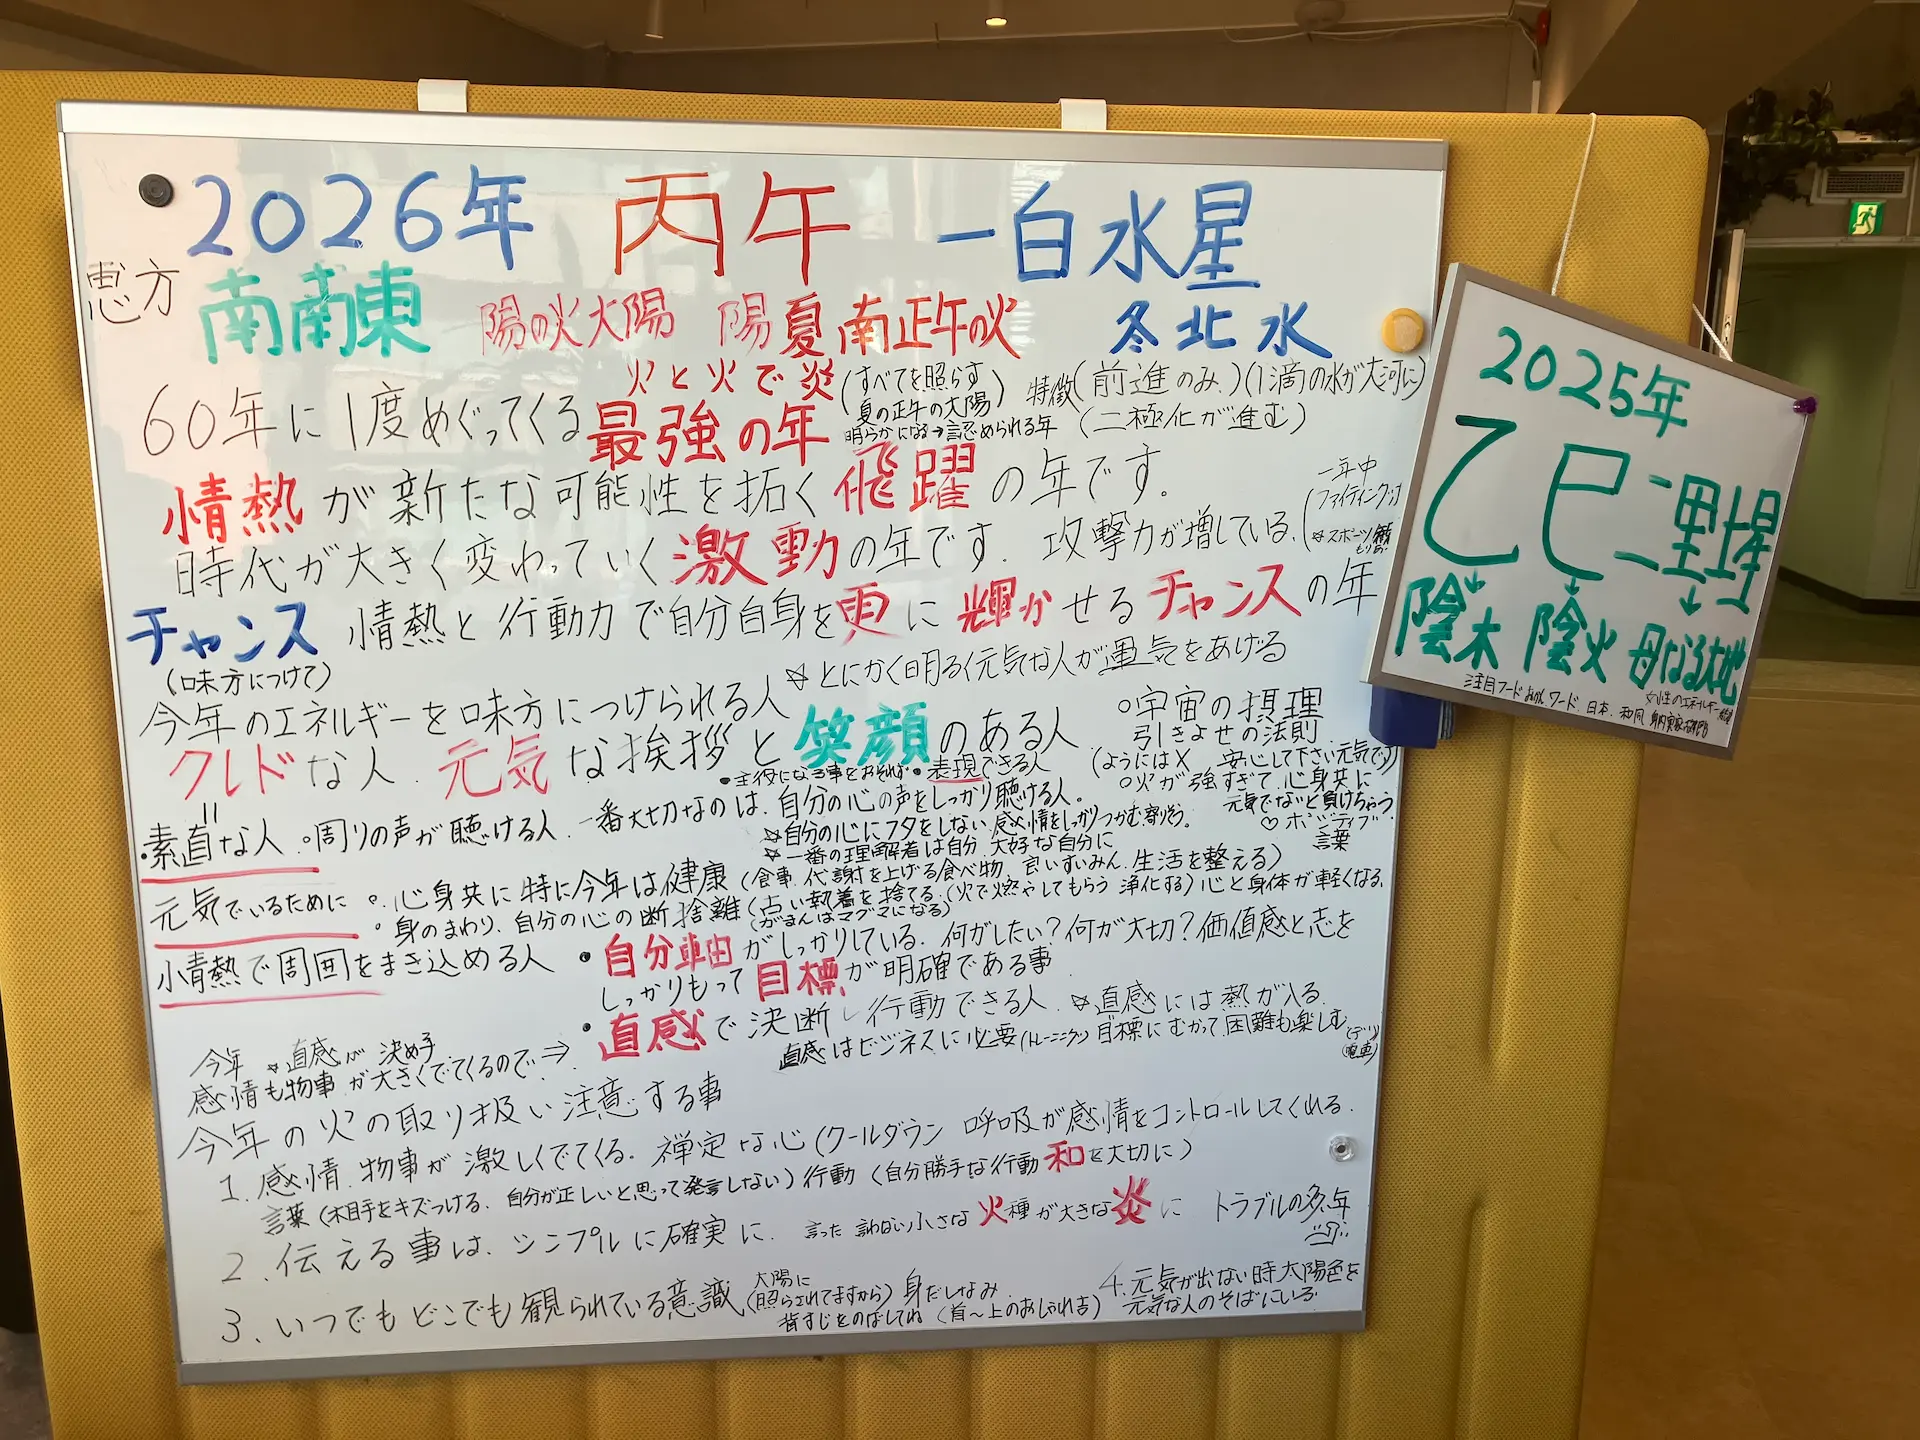 2026年 丙午 一白水星
恵方 南南東 陽の火太陽 陽夏南正午の火 冬北水
火と火で炎 (すべてを照らす 夏の正午の太陽) 特徴 (前進のみ.) (1滴の水が大河に)
60年に1度めぐってくる 最強の年 明らかになる→認められる年 (二極化が進む)
情熱が新たな可能性を拓く飛躍の年です。
時代が大きく変わっていく激動の年です. 攻撃力が増している. (一年中ファイティング ☆スポーツ
チャンス 情熱と行動力で自分自身を更に輝かせるチャンスの年
(味方につけて) ☆とにかく明るく元気な人が運気をあげる
今年のエネルギーを味方につけられる人
○宇宙の摂理
引きよせの法則
クレドな人. 元気な挨拶と笑顔のある人
(ようにはX 安心して下さい元気です)
・主役になる事をおそれず ・表現できる人
○火が強すぎて心身共に
元気でないと負けちゃう
♡ポジティブ
言葉
"
・素直な人 ○周りの声が聴ける人. 一番大切なのは.自分の心の声をしっかり聴ける人。
☆自分の心にフタをしない 感情をしっかりつかむ寄りそう。
☆一番の理解者は自分.大好な自分に
元気でいるために ○心身共に特に今年は健康 (食事.代謝を上げる食べ物.良いすいみん.生活を整える)
○身のまわり、自分の心の断捨離 (古い執着を捨てる.(火で燃やしてもらう 浄化する)心と身体が軽くなる.
(がまんはマグマになる)
小情熱で周囲をまき込める人 ・自分軸がしっかりしている. 何がしたい?何が大切?価値感と志を
しっかりもって目標が明確である事.
・直感で決断し行動できる人. ☆直感には熱が入る.
今年 ☆直感が決め手
直感はビジネスに必要 (トレーニング) 目標にむかって困難も楽しむ
感情も物事が大きくでてくるので⇒
今年の火の取り扱い注意する事
1. 感情.物事が激しくでてくる. 禅定な心 (クールダウン 呼吸が感情をコントロールしてくれる.
言葉 (相手をキズつける. 自分が正しいと思って発言しない) 行動 (自分勝手な行動 和を大切に)
2. 伝える事は、シンプルに確実に. 言った 言わない 小さな火種が大きな炎に トラブルの多い年
3. いつでもどこでも観られている意識 (太陽に照らされてますから) 身だしなみ
背すじをのばしてね (首~上のおしゃれ吉)
4. 元気が出ない時太陽色を
元気な人のそばにいる
2025年
乙巳二黒土星
陰木 陰火 母なる大地
注目フード ワード.日本.和同 女性のエネルギー